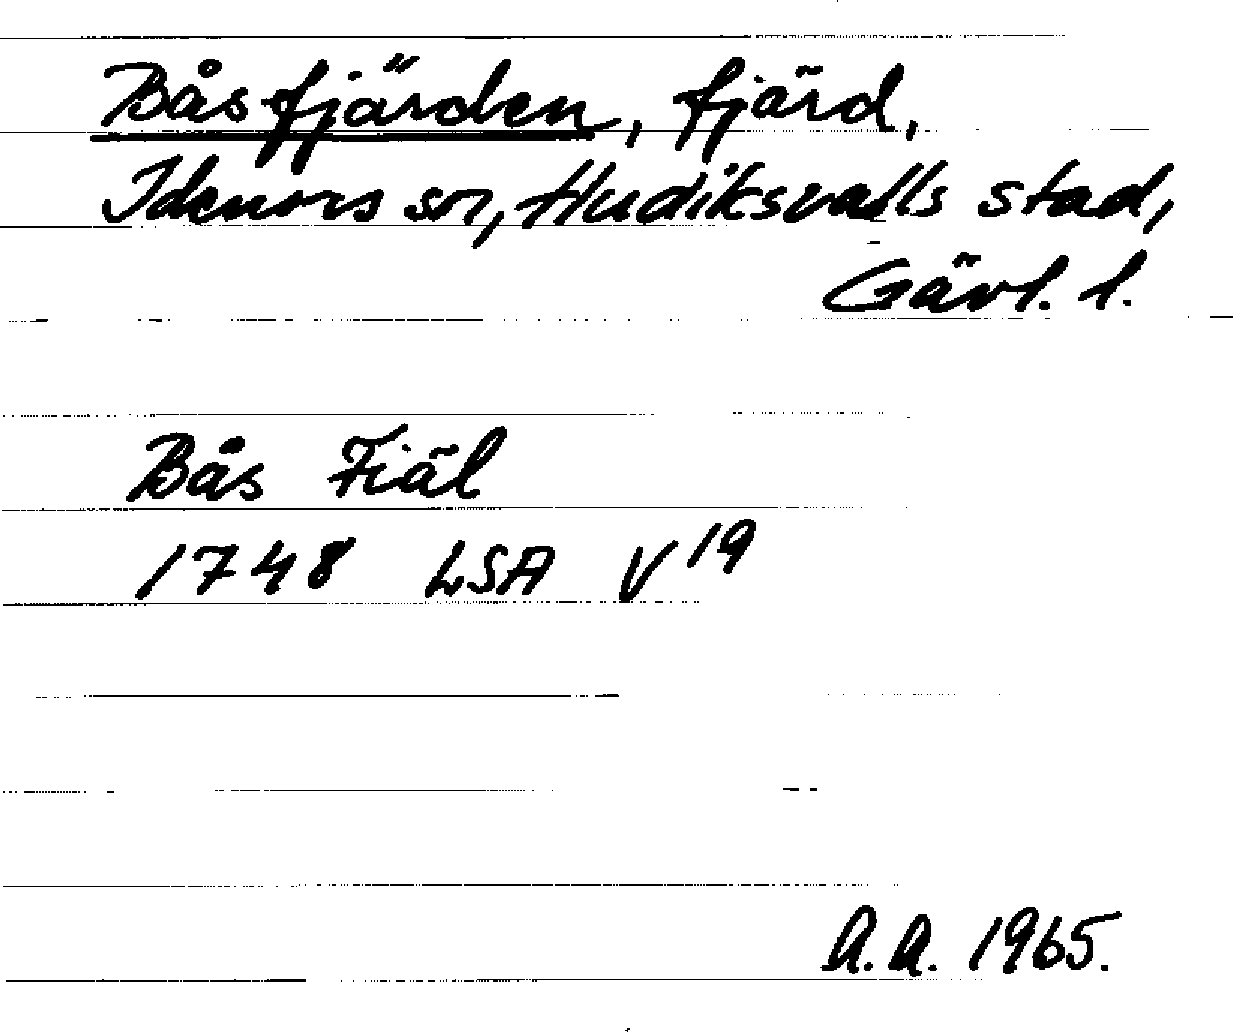 Båsfjärden, fjärd,
Idenors sn, Hudiksvalls stad,
Gävl. l.
Bås Fiäl
1748 LSA V19
A.A. 1965.